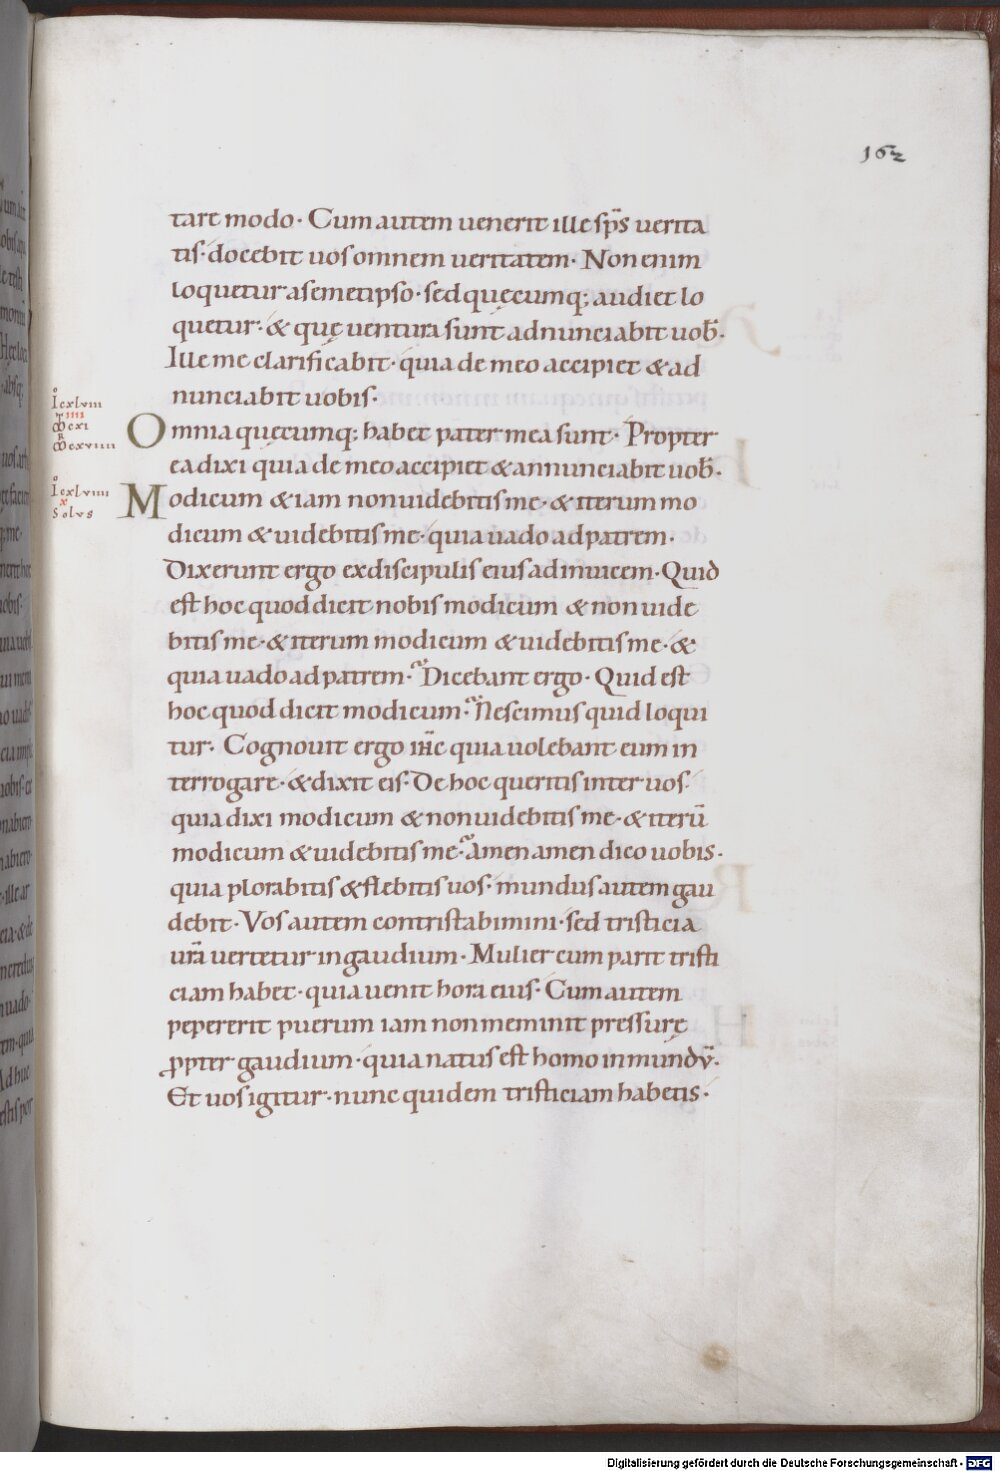 162
tare modo · Cum autem uenerit ille sp̄s uerita
tis · docebit uos omnem ueritatem · Non enim
loquetur a semetipso · sed quęcumq; audiet lo
quetur · & quę uentura sunt adnunciabit uob̄ ·
Ille me clarificabit · quia de meo accipiet & ad
nunciabit uobis ·
Omnia quęcumq; habet pater mea sunt · Propter
ea dixi quia de meo accipiet & annunciabit uob̄ ·
Modicum & iam non uidebitis me · & iterum mo
dicum & uidebitis me · quia uado ad patrem ·
Dixerunt ergo ex discipulis eius ad inuicem · Quid
est hoc quod dicit nobis modicum & non uide
bitis me · & iterum modicum & uidebitis me · &
quia uado ad patrem · Dicebant ergo · Quid est
hoc quod dicit modicum · Nescimus quid loqui
tur · Cognouit ergo ih̄c quia uolebant eum in
terrogare · & dixit eis · De hoc queritis inter uos ·
quia dixi modicum & non uidebitis me · & iterū
modicum & uidebitis me · amen amen dico uobis ·
quia plorabitis & flebitis uos · mundus autem gau
debit · Vos autem contristabimini · sed tristicia
ur̄a uertetur in gaudium · Mulier cum parit tristi
ciam habet · quia uenit hora eius · Cum autem
pepererit puerum iam non meminit pressurę
ꝓpter gaudium · quia natus est homo in mundū ·
Et uos igitur · nunc quidem tristiciam habetis ·
Io cxlviii
iiii
cxi
cxviiii
Io cxlviiii
x
Solvs
Digitalisierung gefördert durch die Deutsche Forschungsgemeinschaft · DFG